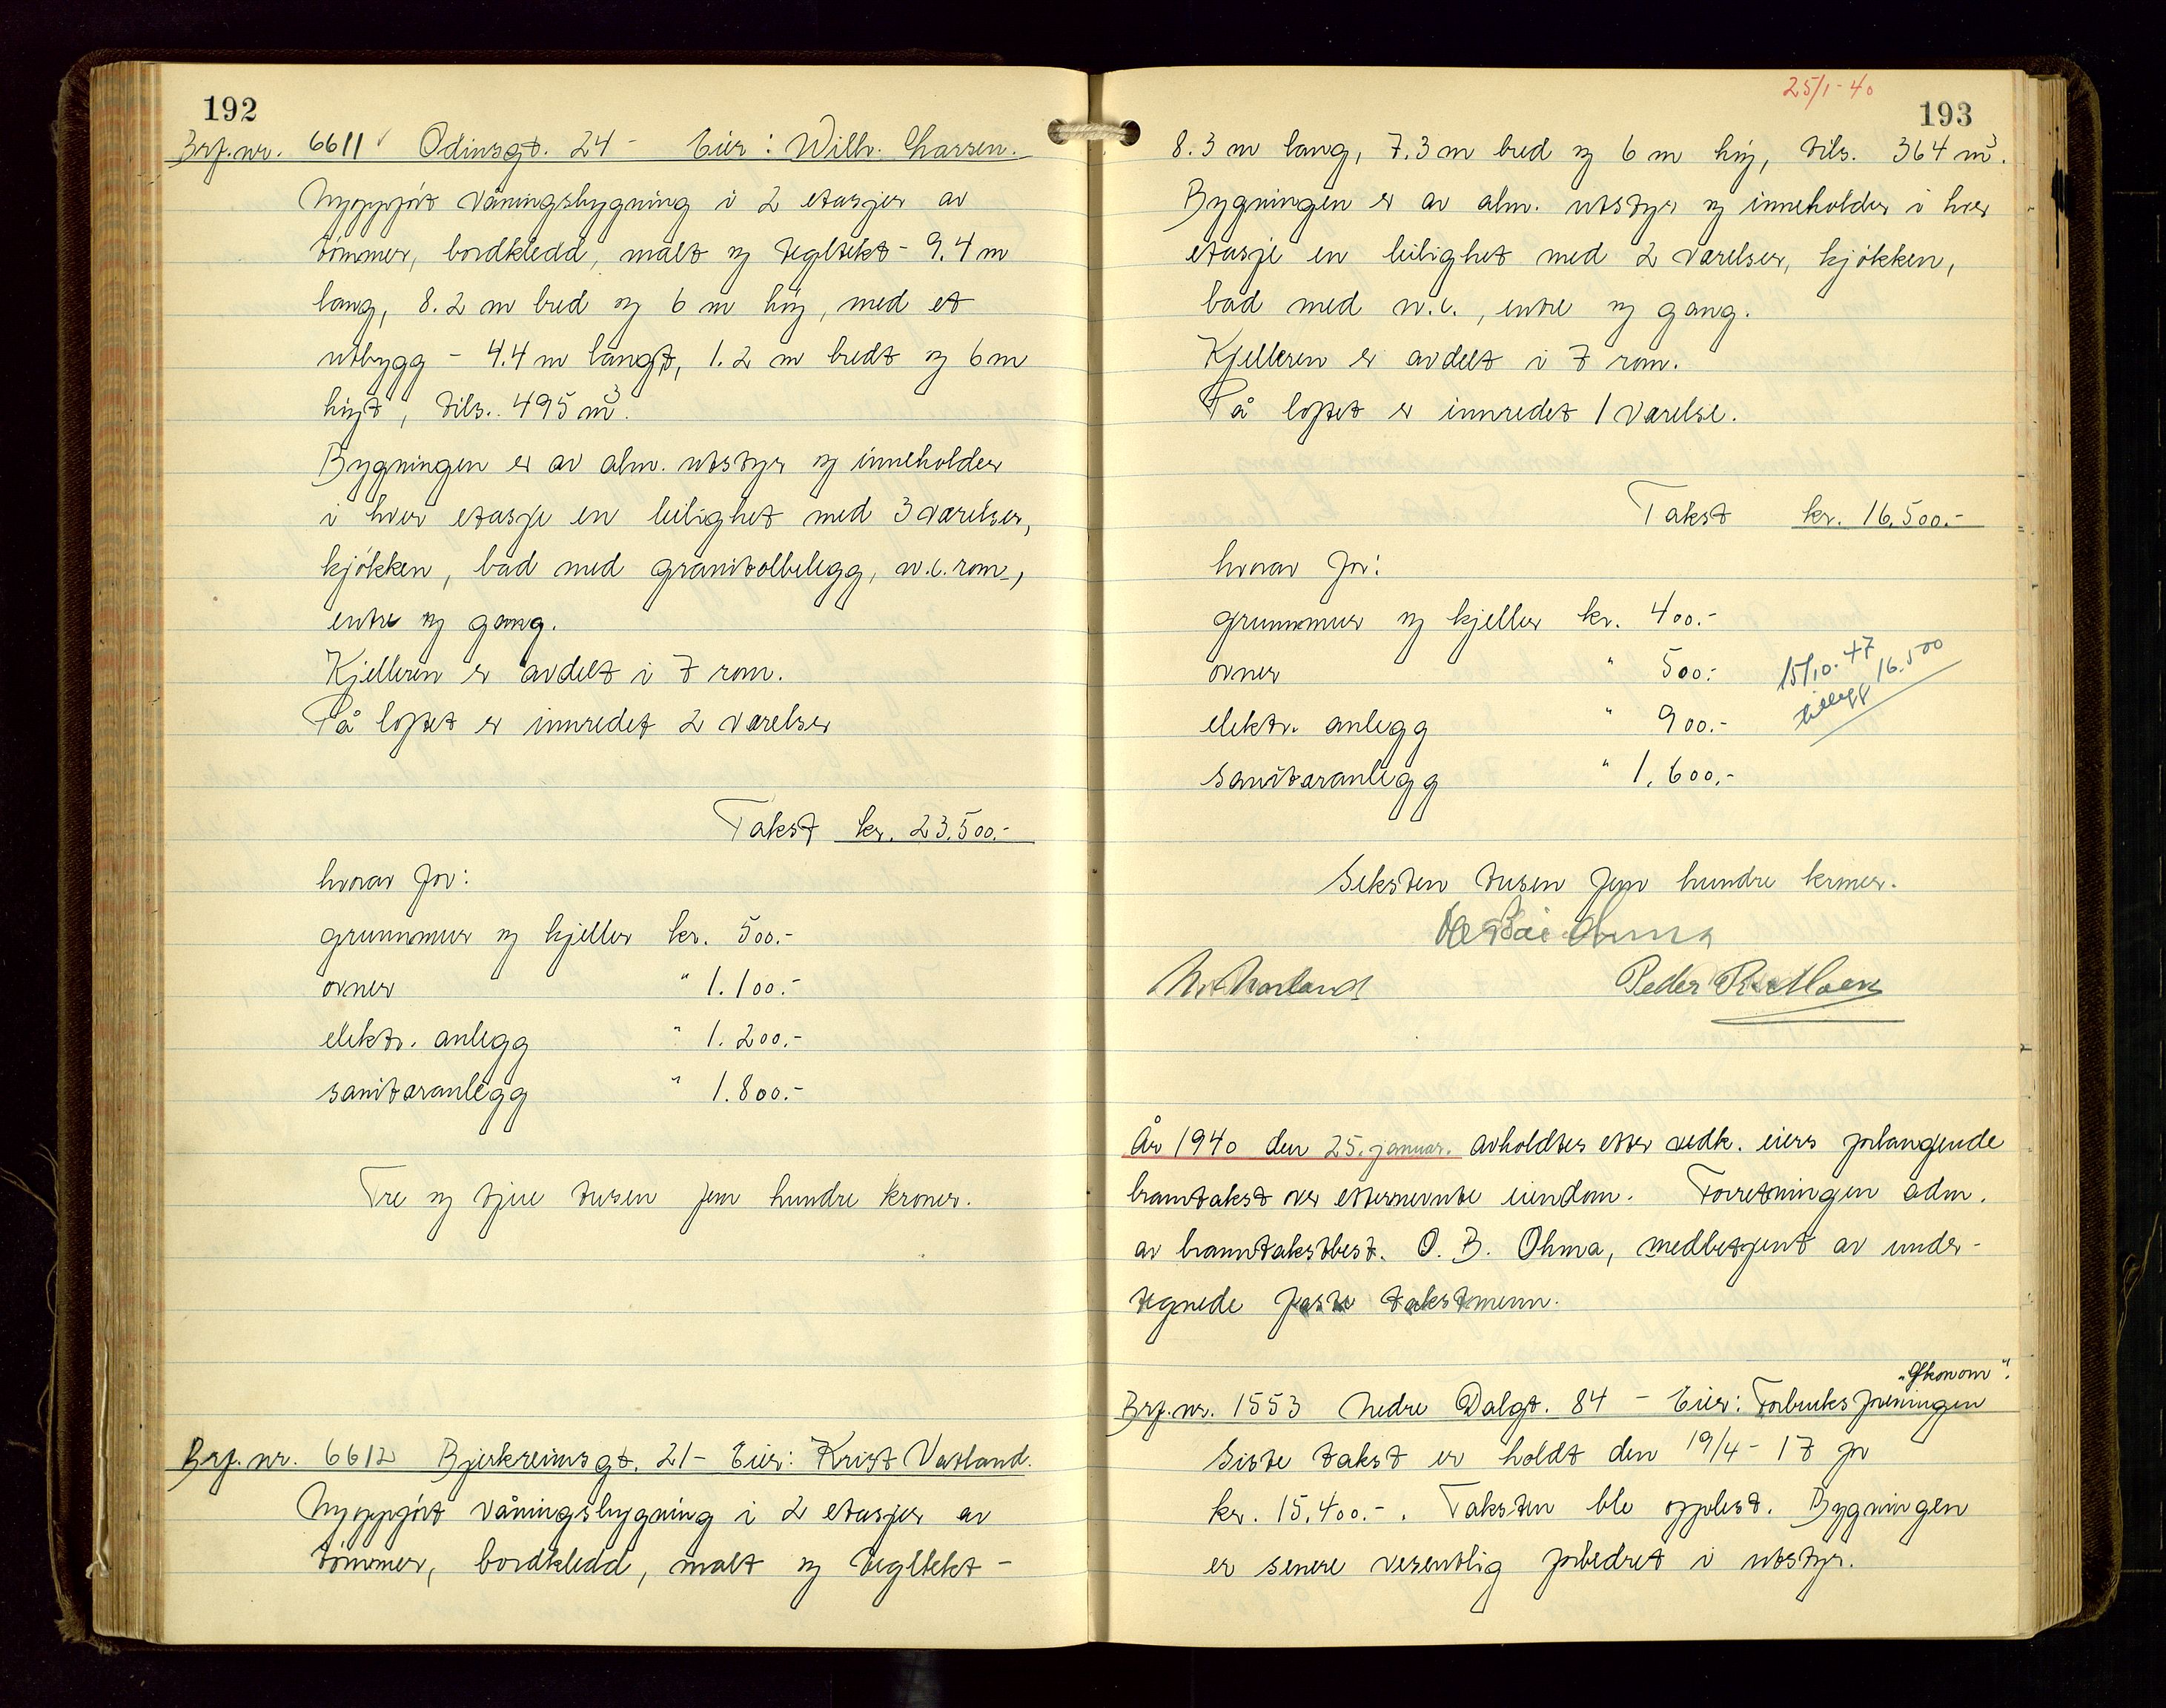 192
Brf. nr. 6611 Odinsgt. 24 - Eier: Wilh. Larsen.
Nyoppført våningsbygning i 2 etasjer av
tømmer, bordkledd, malt og tegltekt - 9.4 m
lang, 8.2 m bred og 6 m høy, med et
utbygg - 4.4 m langt, 1.2 m bredt og 6 m
høyt, tils. 495 m³.
Bygningen er av alm. utstyr og inneholder
i hver etasje en leilighet med 3 værelser,
kjøkken, bad med granitolbelegg, w.c. rom,
entre og gang.
Kjelleren er avdelt i 7 rom.
På loftet er innredet 2 værelser
Takst kr. 23.500.-
hvorav for:
grunnmur og kjeller kr. 500.-
ovner " 1.100.-
elektr. anlegg " 1.200.-
sanitæranlegg " 1.800.-
Tre og tjue tusen fem hundre kroner.
Brf. nr. 6612 Bjerkreimsgt. 21 - Eier: Krist Vatland.
Nyoppført våningsbygning i 2 etasjer av
tømmer, bordkledd, malt og tegltekt -
25/1-40
193
8.3 m lang, 7.3 m bred og 6 m høy, tils. 364 m³.
Bygningen er av alm. utstyr og inneholder i hver
etasje en leilighet med 2 værelser, kjøkken,
bad med w.c., entre og gang.
Kjelleren er avdelt i 7 rom.
På loftet er innredet 1 værelse.
Takst kr. 16.500.-
hvorav for:
grunnmur og kjeller kr. 400.-
ovner " 500.-
elektr. anlegg " 900.-
sanitæranlegg " 1.600.-
15/10.47
tillegg 16.500
Seksten tusen fem hundre kroner.
Ohma
Peder
År 1940 den 25. januar. avholdtes etter vedk. eiers forlangende
branntakst over etternevnte eiendom. Forretningen adm.
av branntakstbest. O. B. Ohma, medbetjent av under-
tegnede faste takstmenn.
"Økonom".
Brf. nr. 1553 Nedre Dalgt. 84 - Eier: Forbruksforeningen
Siste takst er holdt den 19/4-17 for
kr. 15.400.-. Taksten ble opplest. Bygningen
er senere vesentlig forbedret i utstyr.